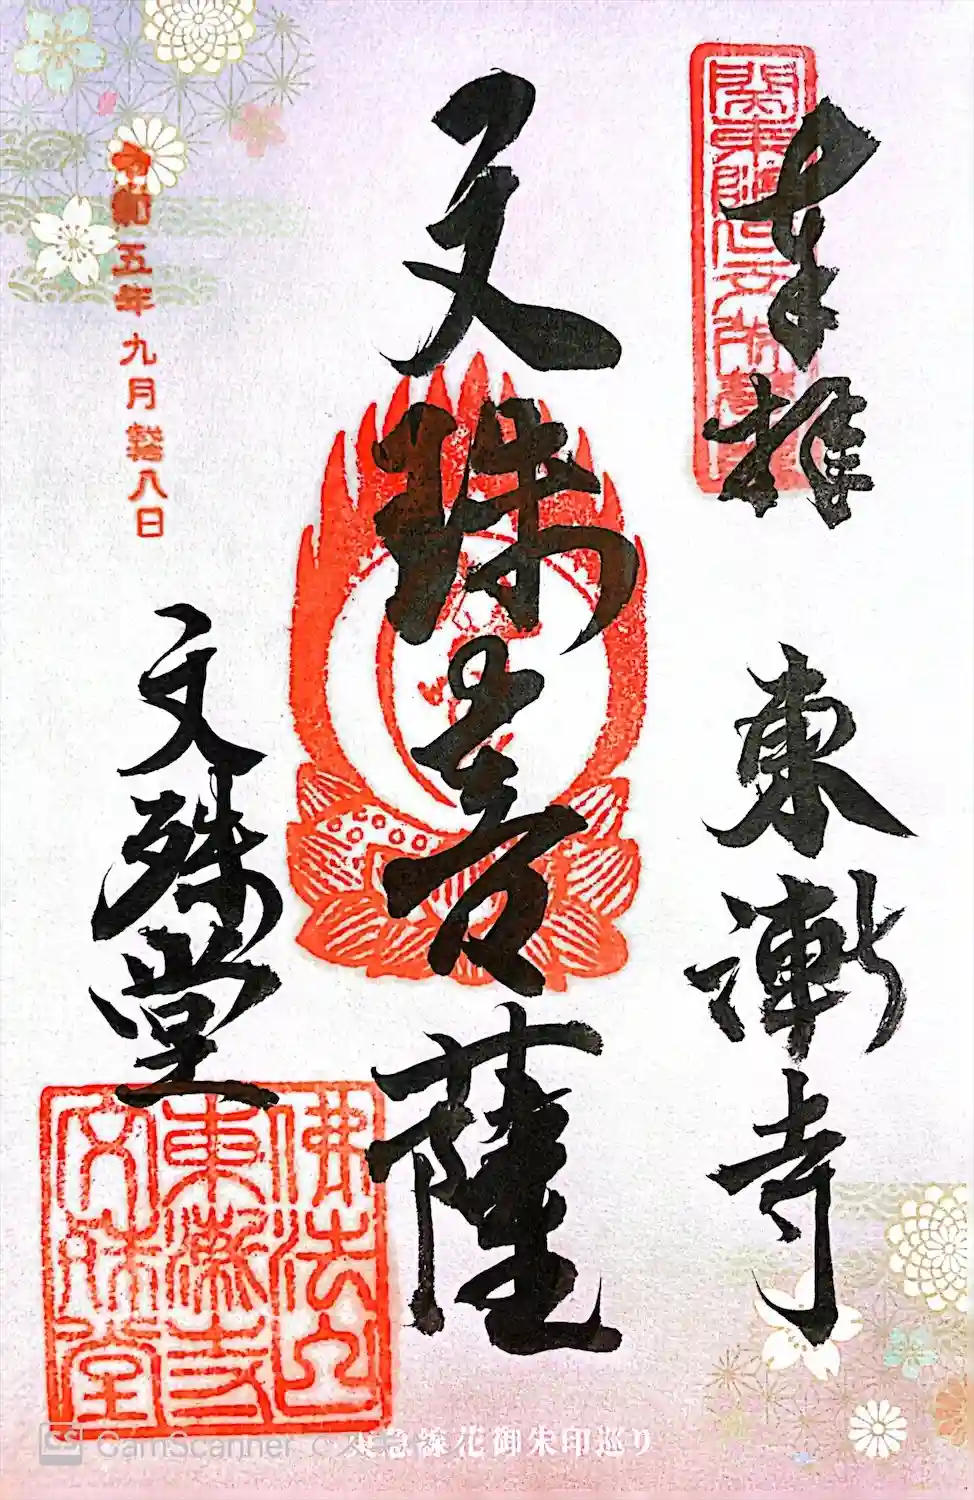 奉拝
東漸寺
文珠菩薩
令和五年九月 八日
文殊堂
佛法山
東漸寺
文殊堂
東急線花御朱印巡り
CamScanner